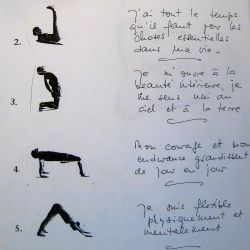 2.
j'ai tout le temps
qu'il faut pour les
choses essentielles
dans ma vie.
3.
je m'ouvre à la
beauté intérieure, je
me sens uni au
ciel et à la terre
4.
Mon courage et mon
endurance grandissent
de jour en jour
5.
je suis flexible
physiquement et
mentalement